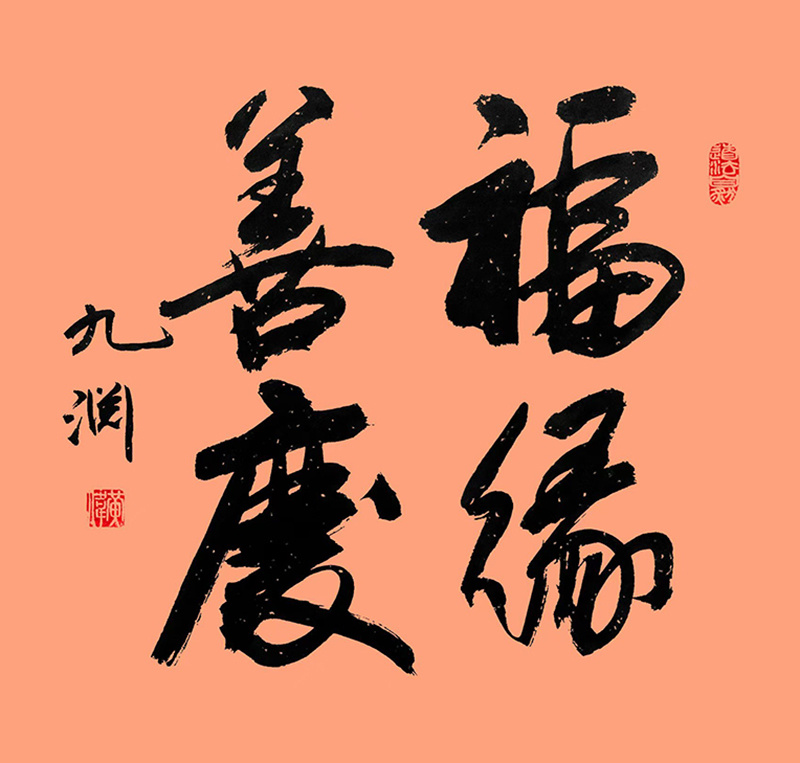 福缘
善庆
九渊